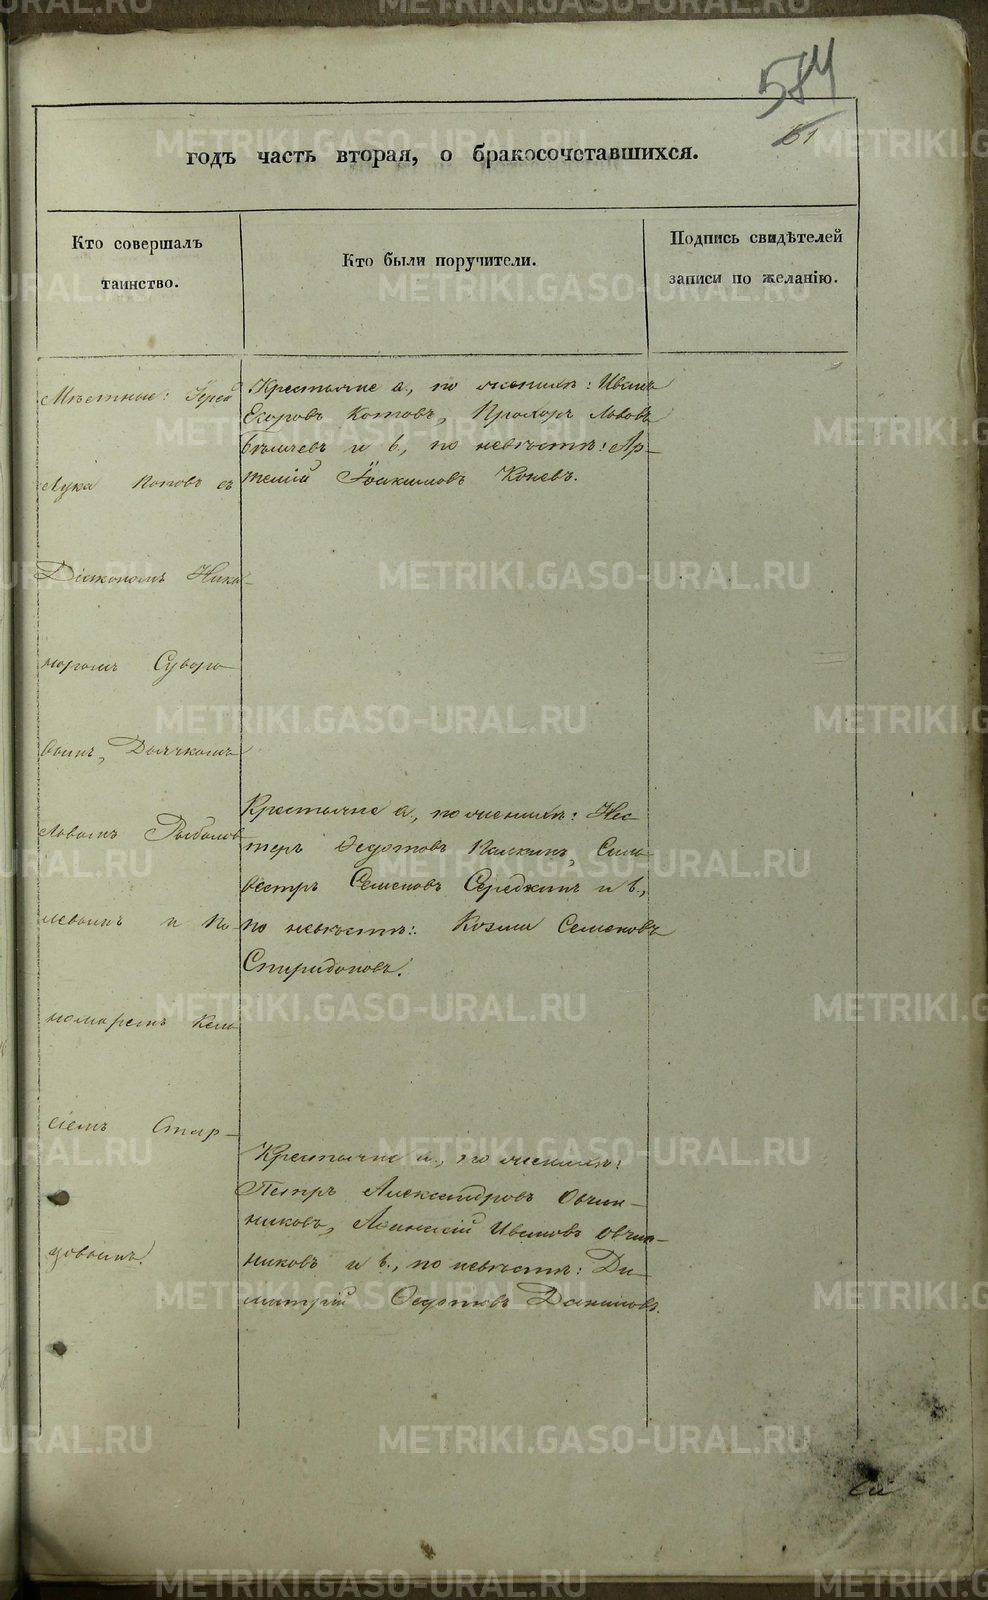 584
61
годъ часть вторая, о бракосочетавшихся.
Кто совершалъ
таинство.
Кто были поручители.
Подпись свидѣтелей
записи по желанію.
Мѣстные: Іерей
Лука Поповъ съ
Діакономъ Ника-
норомъ Суворо-
вымъ, Дьячкомъ
Львомъ
и По-
номаремъ
Стар-
цовымъ.
Крестьяне а., по женихѣ: Иванъ
Егоровъ Котовъ, Прохоръ Львовъ
и в., по невѣстѣ: Ар-
темій Іоакимовъ Коневъ.
Крестьяне а., по женихѣ: Нес-
теръ Ѳедотовъ Палкинъ, Силь-
вестръ Семеновъ Середкинъ и в.,
по невѣстѣ: Козма Семеновъ
Спиридоновъ.
Крестьяне а., по женихѣ:
Петръ Александровъ Овчин-
никовъ, Аѳанасій Ивановъ Овчин-
никовъ и в., по невѣстѣ: Ди-
митрій Ѳедотовъ Даниловъ.
METRIKI.GASO-URAL.RU